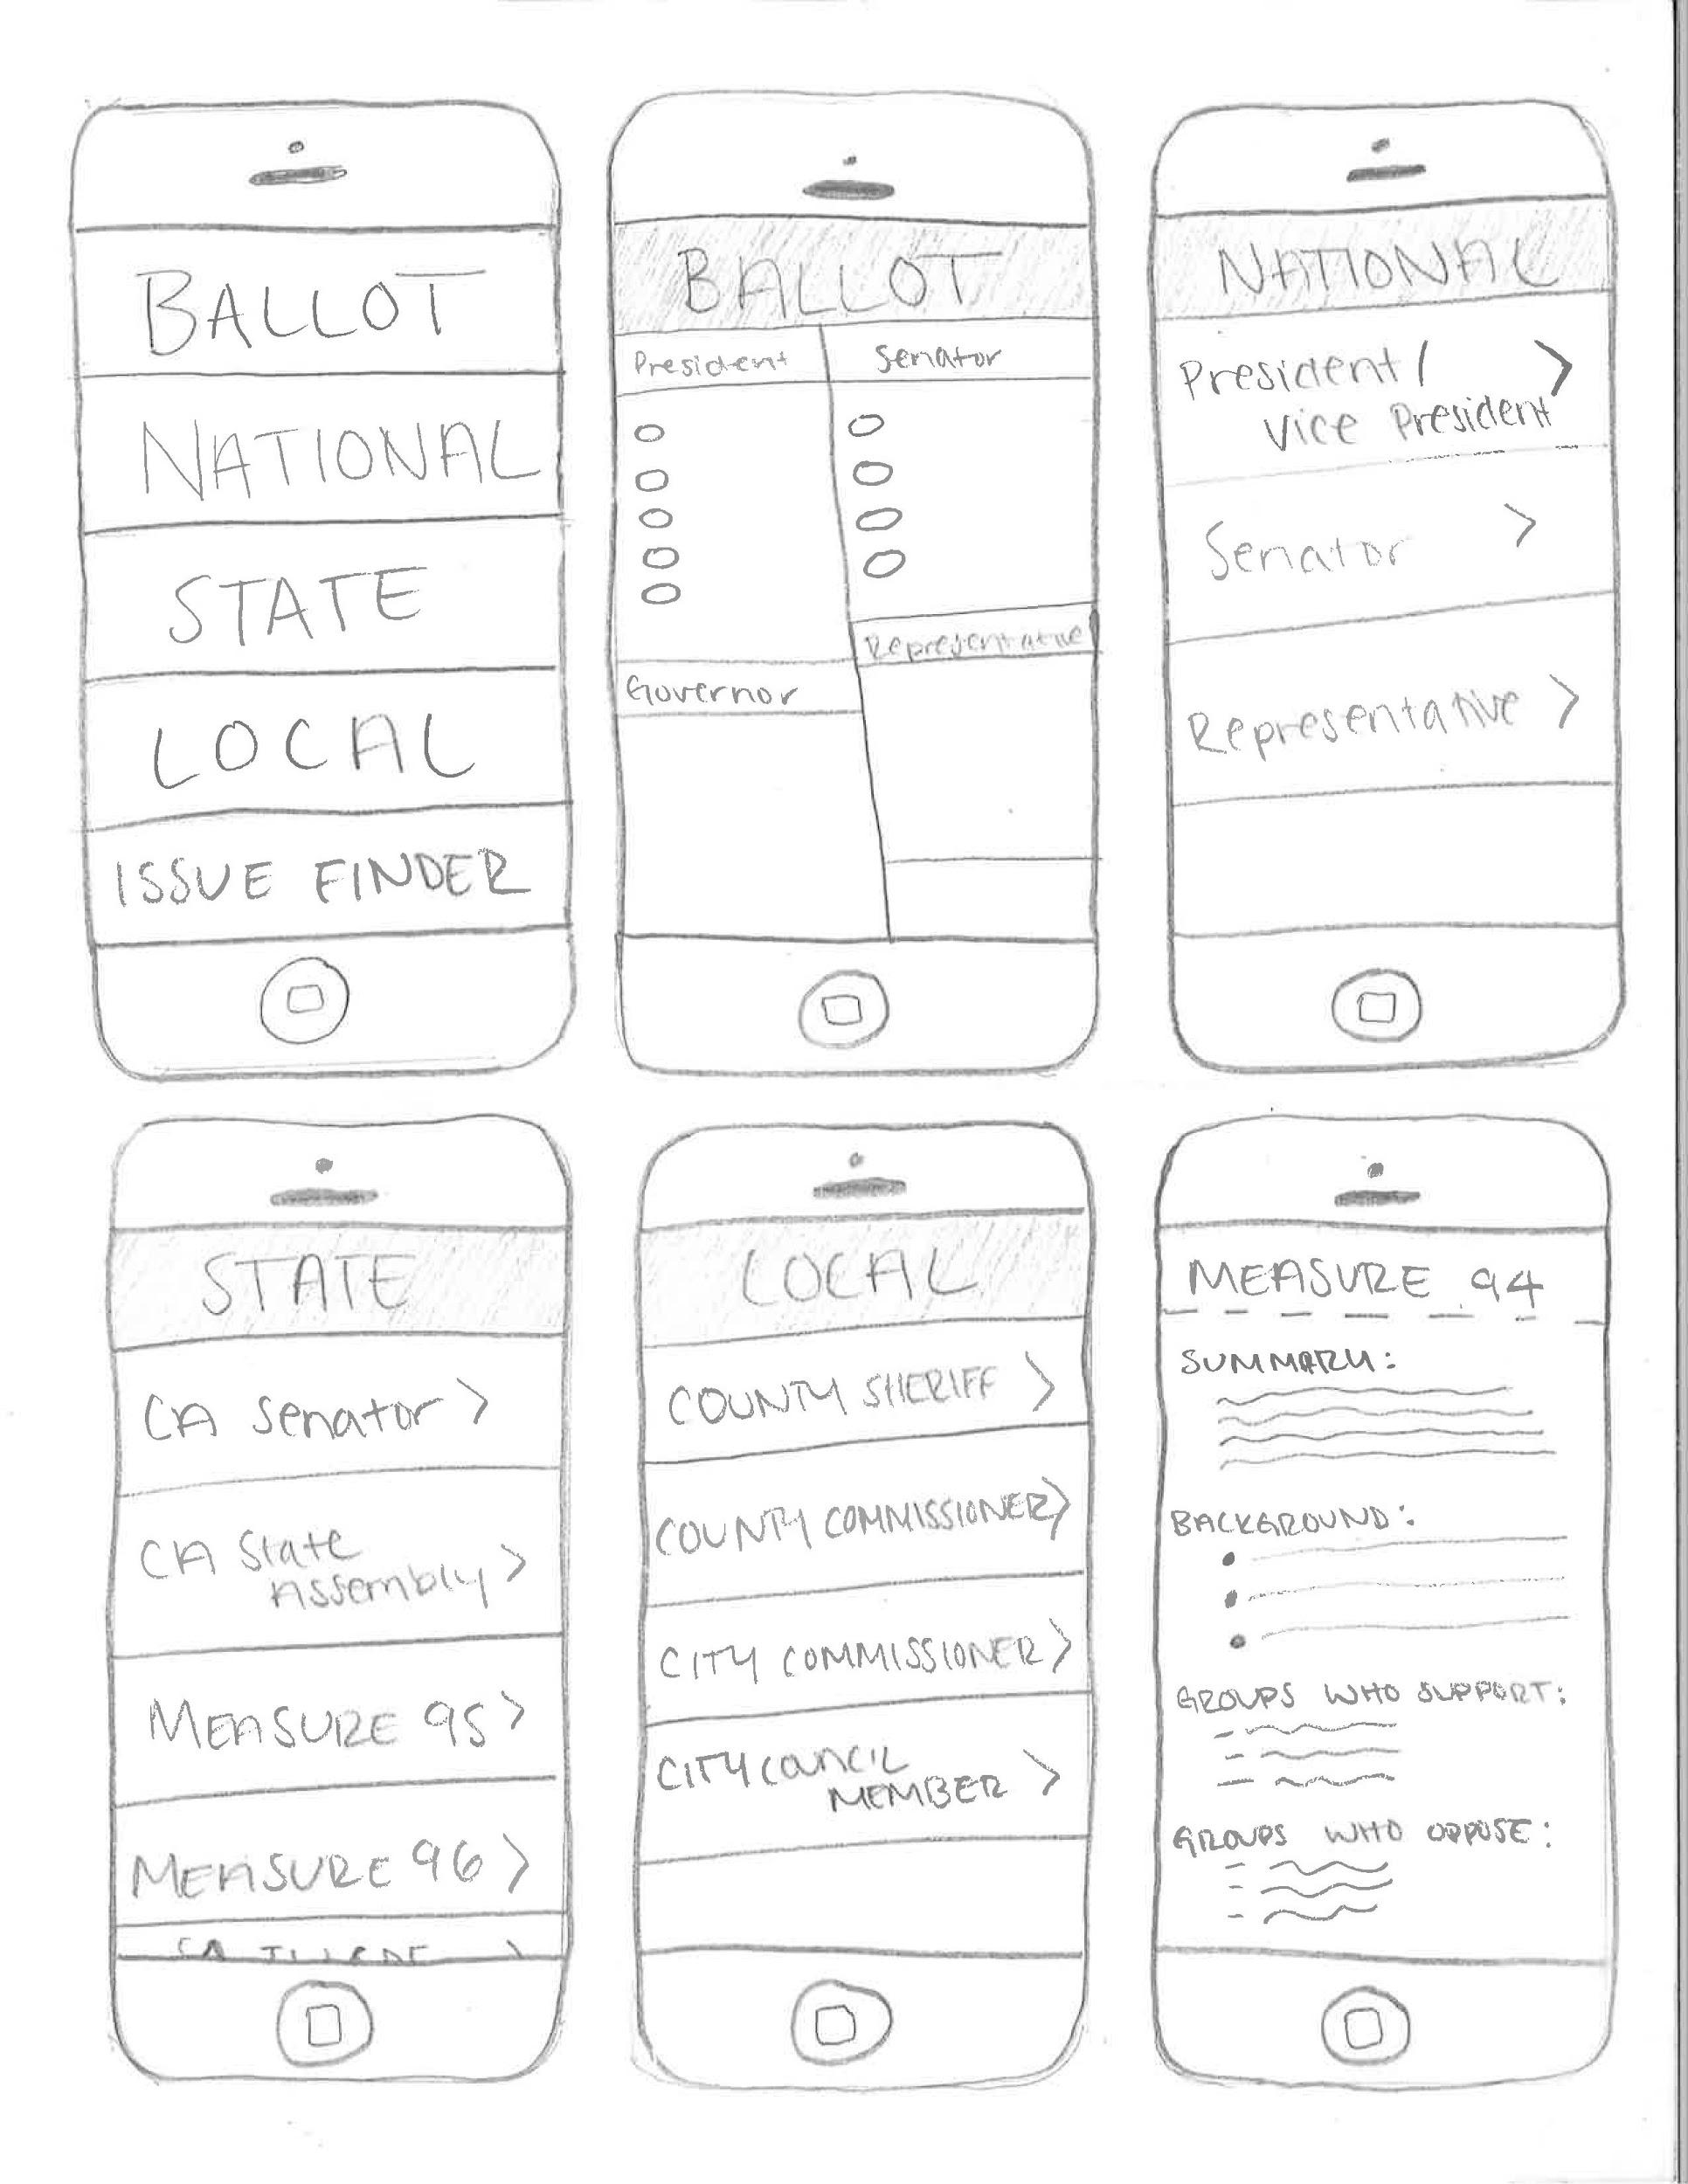 BALLOT
NATIONAL
STATE
LOCAL
ISSUE FINDER
BALLOT
President
Senator
Representative
Governor
NATIONAL
President/ >
Vice President
Senator >
Representative >
STATE
CA Senator >
CA State
Assembly >
MEASURE 95 >
MEASURE 96 >
CA
LOCAL
COUNTY SHERIFF >
COUNTY COMMISSIONER >
CITY COMMISSIONER >
CITY COUNCIL
MEMBER >
MEASURE 94
SUMMARY:
BACKGROUND:
GROUPS WHO SUPPORT:
GROUPS WHO OPPOSE: